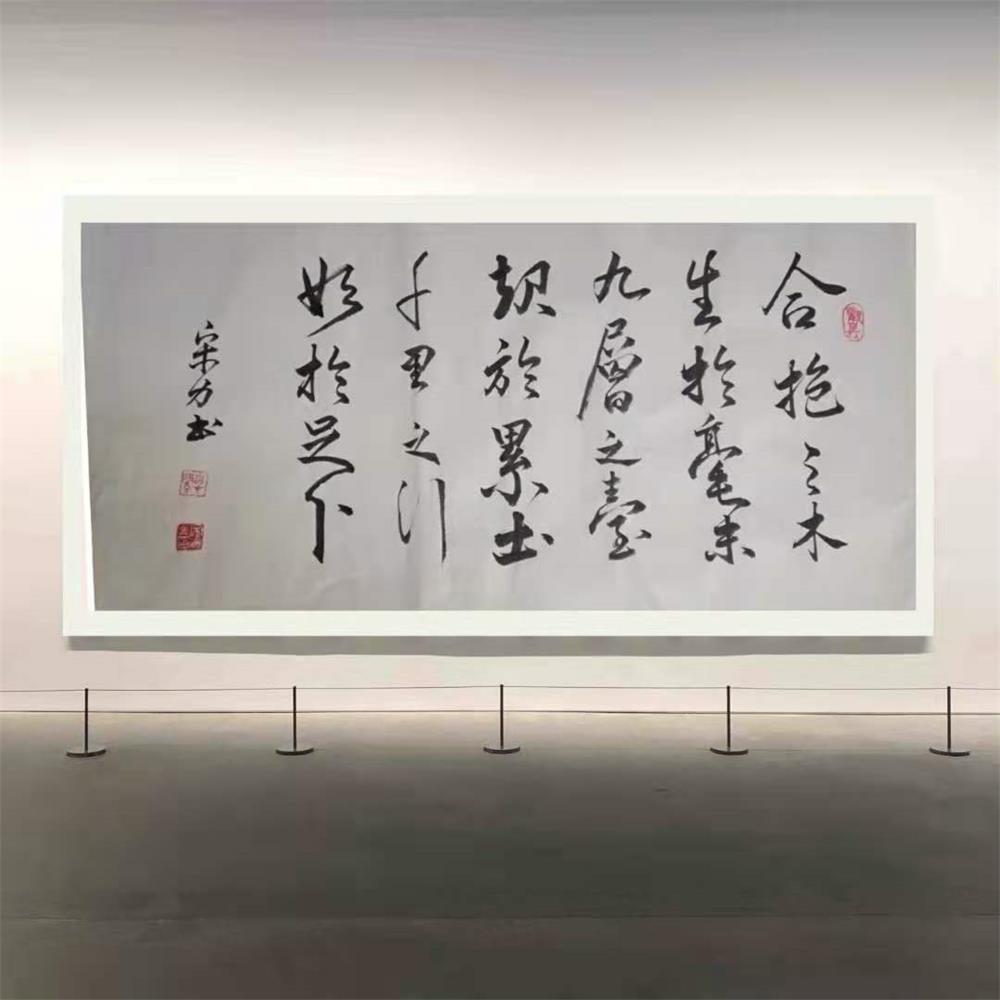 合抱之木
生於毫末
九層之臺
起於累土
千里之行
始於足下
宋力书